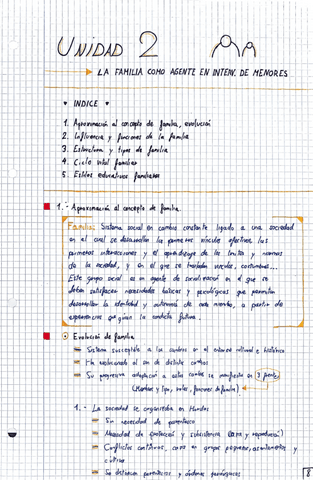 UNIDAD 2
LA FAMILIA COMO AGENTE EN INTERV. DE MENORES
INDICE
1. Aproximación al concepto de familia, evolución
2. Influencia y funciones de la familia
3. Estructura y tipos de familia
4. Ciclo vital familiar
5. Estilos educativos familiares
1.- Aproximación al concepto de familia.
Familia: Sistema social en cambio constante ligado a una sociedad
en el cual se desarrollan los primeros vínculos afectivos, las
primeras interacciones y el aprendizaje de los límites y normas
de la sociedad, y en el que se trasladan vínculos, costumbres...
Este grupo social es un agente de socialización en el que se
deben satisfacer necesidades básicas y psicológicas que permitan
desarrollar la identidad y autonomía de cada miembro, a partir de
experiencias que guían la conducta futura.
Evolución de familia
Sistema susceptible a los cambios en el entorno cultural e histórico
Ha evolucionado al son de dichos cambios
Su progresiva adaptación a estos cambios se manifiesta en 3 puntos
(Nombre y tipo, roles, funciones de familia)
1.- La sociedad se organizaba en Hordas
Sin necesidad de parentesco
Necesidad de protección y subsistencia (caza y reproducción)
Conflictos continuos, caza en grupos pequeños, asentamientos y
cultivos
Se distancian
8